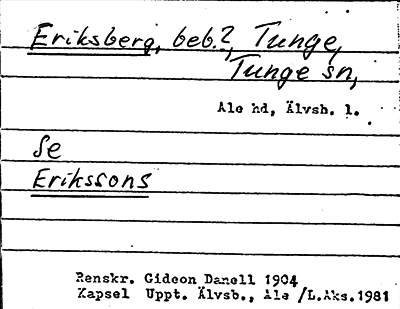 Eriksberg, beb.?, Tunge,
Tunge sn,
Ale hd, Älvsb. l.
Se
Erikssons
Renskr. Gideon Danell 1904
Kapsel Uppt. Älvsb., Ale /L.Aks.1981